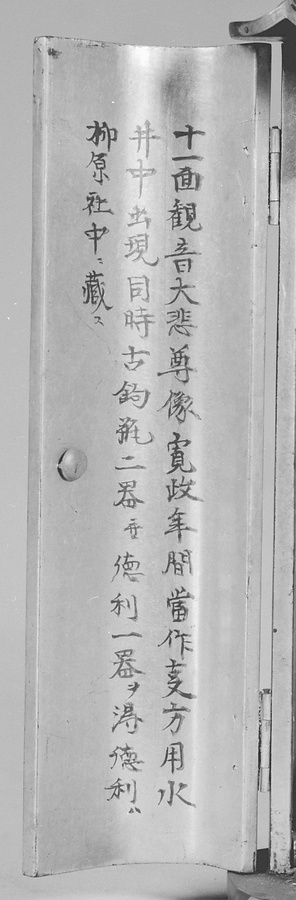 十一面観音大悲尊像寛政年間當作支方用水
井中出現同時古釣瓶二器並徳利一器ヲ得徳利ハ
柳原社中ニ蔵ス